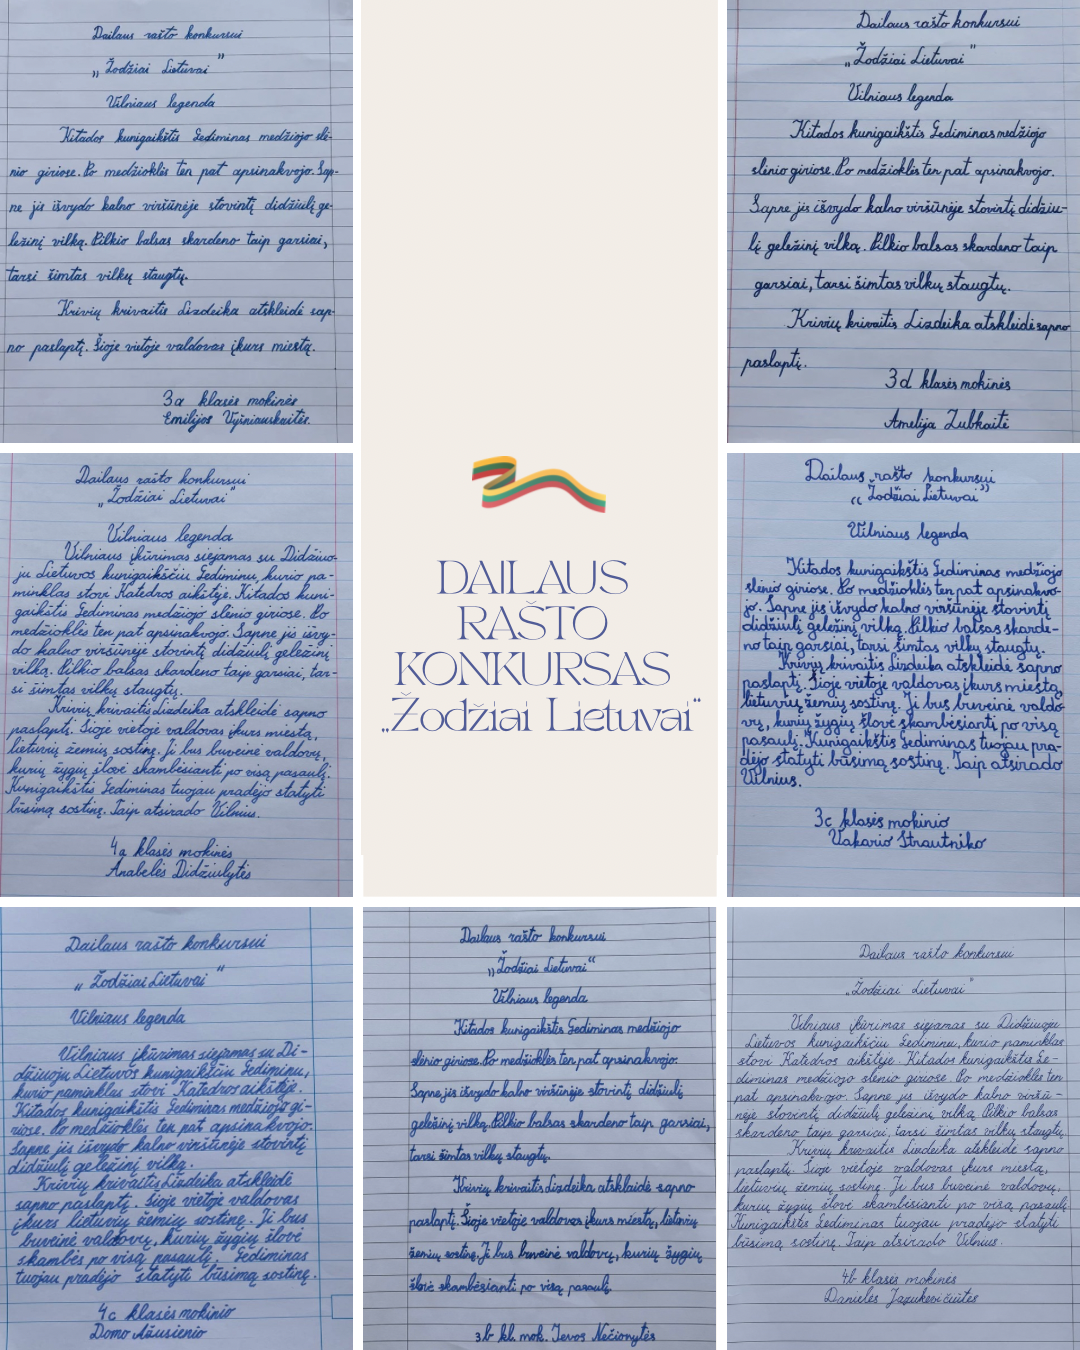 Dailaus rašto konkursui
„Žodžiai Lietuvai”
Vilniaus legenda
Kitados kunigaikštis Gediminas medžiojo slė-
nio giriose. Po medžioklės ten pat apsinakvojo. Sap-
ne jis išvydo kalno viršūnėje stovintį didžiulį ge-
ležinį vilką. Pilkio balsas skardeno taip garsiai,
tarsi šimtas vilkų staugtų.
Krivių krivaitis Lizdeika atskleidė sap-
no paslaptį. Šioje vietoje valdovas įkurs miestą.
3a klasės mokinės
Emilijos Vyšniauskaitės.
Dailaus rašto konkursui
„Žodžiai Lietuvai”
Vilniaus legenda
Kitados kunigaikštis Gediminas medžiojo
slėnio giriose. Po medžioklės ten pat apsinakvojo.
Sapne jis išvydo kalno viršūnėje stovintį didžiu-
lį geležinį vilką. Pilkio balsas skardeno taip
garsiai, tarsi šimtas vilkų staugtų.
Krivių krivaitis Lizdeika atskleidė sapno
paslaptį.
3d klasės mokinės
Amelija Zubkaitė
Dailaus rašto konkursui
„Žodžiai Lietuvai”
Vilniaus legenda
Vilniaus įkūrimas siejamas su Didžiuo-
ju Lietuvos kunigaikščiu Gediminu, kurio pa-
minklas stovi Katedros aikštėje. Kitados kuni-
gaikštis Gediminas medžiojo slėnio giriose. Po
medžioklės ten pat apsinakvojo. Sapne jis išvy-
do kalno viršūnėje stovintį didžiulį geležinį
vilką. Pilkio balsas skardeno taip garsiai, tar-
si šimtas vilkų staugtų.
Krivių krivaitis Lizdeika atskleidė sapno
paslaptį. Šioje vietoje valdovas įkurs miestą,
lietuvių žemių sostinę. Ji bus buveinė valdovų,
kurių žygių šlovė skambėsianti po visą pasaulį.
Kunigaikštis Gediminas tuojau pradėjo statyti
būsimą sostinę. Taip atsirado Vilnius.
4a klasės mokinės
Anabelės Didžiulytės
DAILAUS
RAŠTO
KONKURSAS
„Žodžiai Lietuvai“
Dailaus rašto konkursui
„Žodžiai Lietuvai”
Vilniaus legenda
Kitados kunigaikštis Gediminas medžiojo
slėnio giriose. Po medžioklės ten pat apsinakvo-
jo. Sapne jis išvydo kalno viršūnėje stovintį
didžiulį geležinį vilką. Pilkio balsas skarde-
no taip garsiai, tarsi šimtas vilkų staugtų.
Krivių krivaitis Lizdeika atskleidė sapno
paslaptį. Šioje vietoje valdovas įkurs miestą,
lietuvių žemių sostinę. Ji bus buveinė valdo-
vų, kurių žygių šlovė skambėsianti po visą
pasaulį. Kunigaikštis Gediminas tuojau pra-
dėjo statyti būsimą sostinę. Taip atsirado
Vilnius.
3c klasės mokinio
Vakario Strautniko
Dailaus rašto konkursui
„Žodžiai Lietuvai”
Vilniaus legenda
Vilniaus įkūrimas siejamas su Di-
džiuoju Lietuvos kunigaikščiu Gediminu,
kurio paminklas stovi Katedros aikštėje.
Kitados kunigaikštis Gediminas medžiojo gi-
riose. Po medžioklės ten pat apsinakvojo.
Sapne jis išvydo kalno viršūnėje stovintį
didžiulį geležinį vilką.
Krivių krivaitis Lizdeika atskleidė
sapno paslaptį. Šioje vietoje valdovas
įkurs lietuvių žemių sostinę. Ji bus
buveinė valdovų, kurių žygių šlovė
skambės po visą pasaulį. Gediminas
tuojau pradėjo statyti būsimą sostinę.
4c klasės mokinio
Domo Ažusienio
Dailaus rašto konkursui
„Žodžiai Lietuvai“
Vilniaus legenda
Kitados kunigaikštis Gediminas medžiojo
slėnio giriose. Po medžioklės ten pat apsinakvojo.
Sapne jis išvydo kalno viršūnėje stovintį didžiulį
geležinį vilką. Pilkio balsas skardeno taip garsiai,
tarsi šimtas vilkų staugtų.
Krivių krivaitis Lizdeika atsklaidė sapno
paslaptį. Šioje vietoje valdovas įkurs miestą, lietuvių
žemių sostinę. Ji bus buveinė valdovų, kurių žygių
šlovė skambėsianti po visą pasaulį.
3b kl. mok. Ievos Nečionytės
Dailaus rašto konkursui
„Žodžiai Lietuvai”
Vilniaus įkūrimas siejamas su Didžiuoju
Lietuvos kunigaikščiu Gediminu, kurio paminklas
stovi Katedros aikštėje. Kitados kunigaikštis Ge-
diminas medžiojo slėnio giriose. Po medžioklės ten
pat apsinakvojo. Sapne jis išvydo kalno viršū-
nėje stovintį didžiulį geležinį vilką. Pilkio balsas
skardeno taip garsiai, tarsi šimtas vilkų staugtų.
Krivių krivaitis Lizdeika atskleidė sapno
paslaptį. Šioje vietoje valdovas įkurs miestą,
lietuvių žemių sostinę. Ji bus buveinė valdovų,
kurių žygių šlovė skambėsianti po visą pasaulį.
Kunigaikštis Gediminas tuojau pradėjo statyti
būsimą sostinę. Taip atsirado Vilnius.
4b klasės mokinės
Danielės Jazukevičiūtės